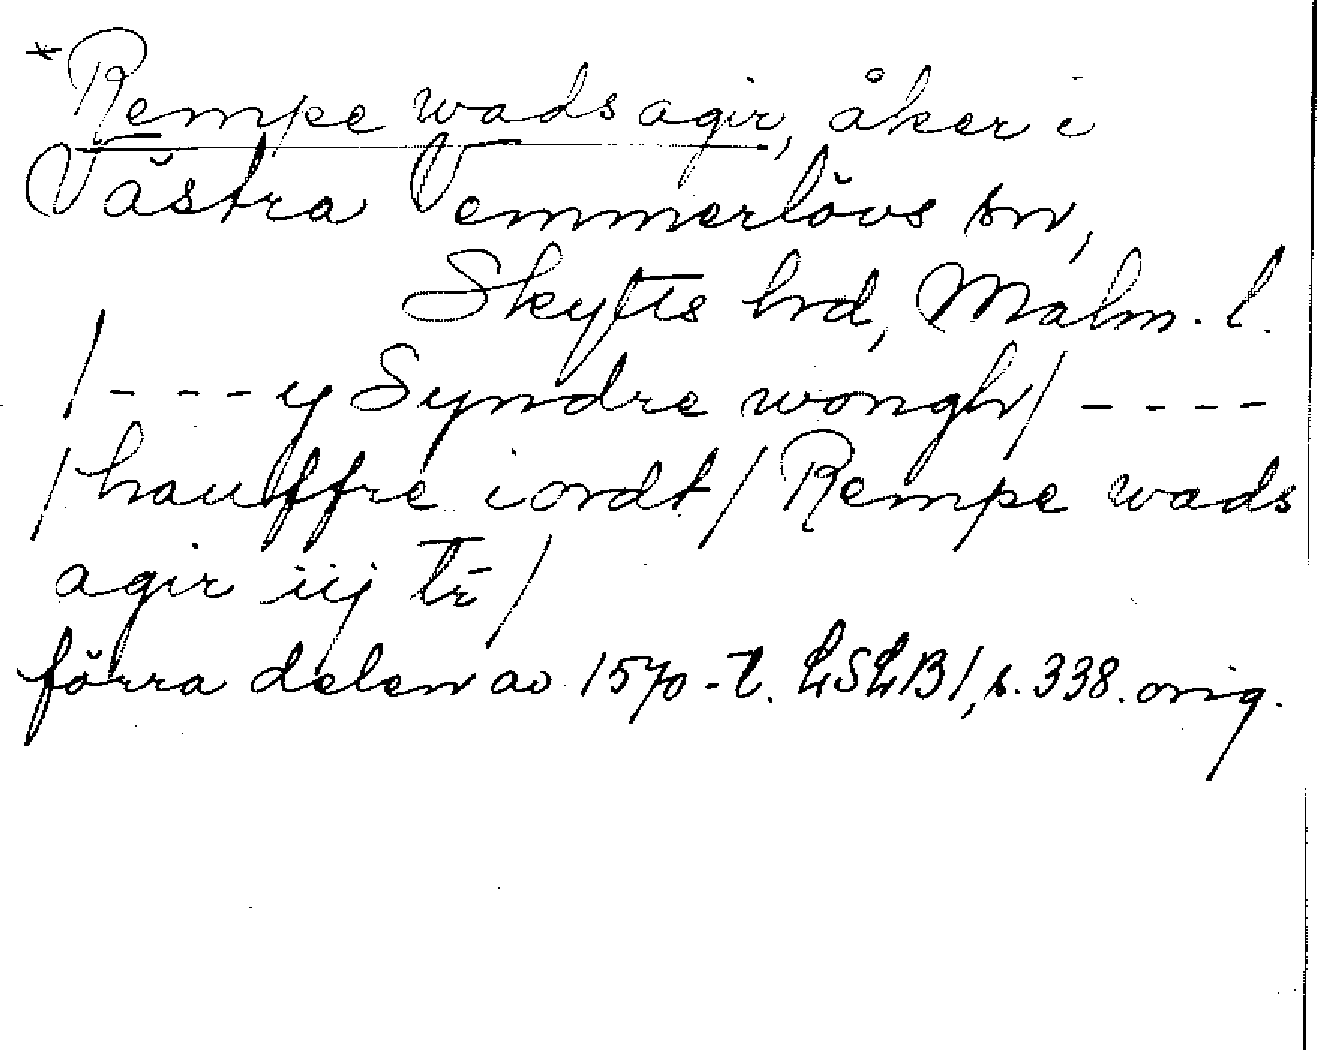 *Rempe wads agir, åker i
Västra Vemmerlövs sn,
Skytts hrd, Malm. l.
/ - - - - y Syndre wongh/ - - - -
/hauffre iordt/ Rempe wads
agir iij tr̄/
förra delen av 1570-t. LSLB1, s. 338. orig.